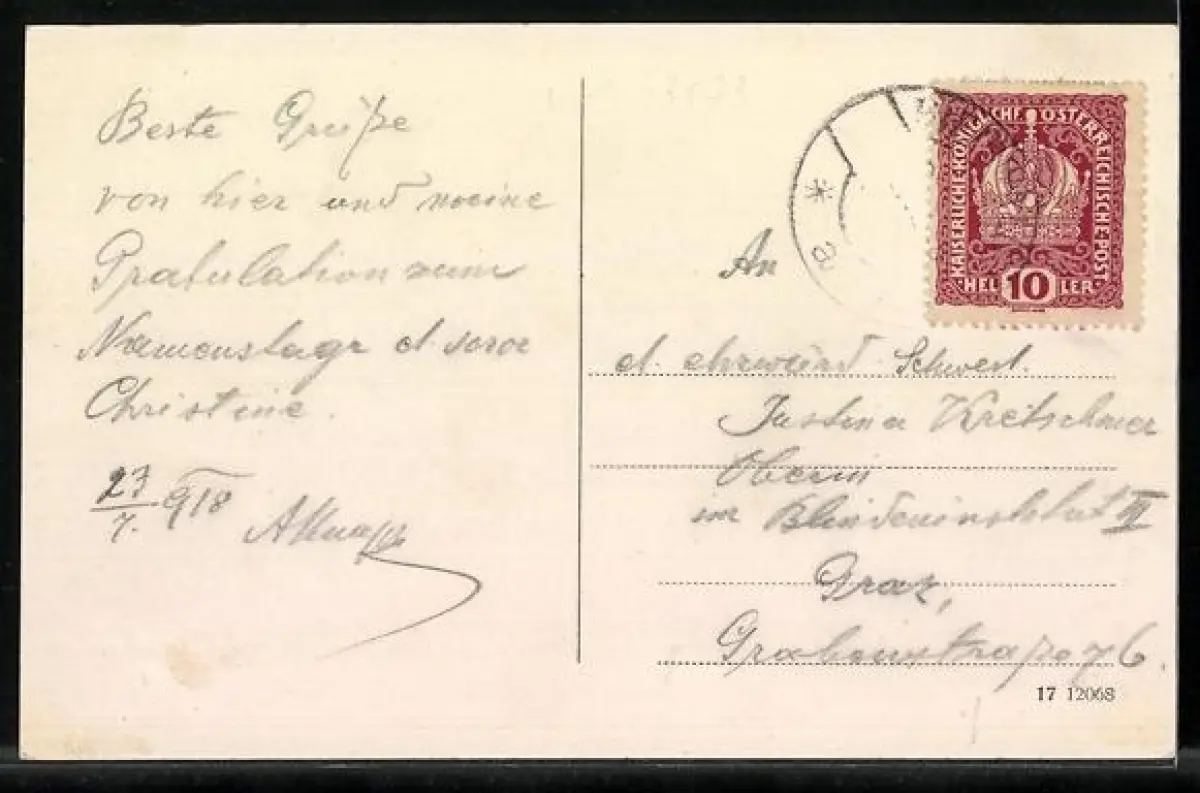 Beste Grüße
von hier und meine
Gratulation zum
Namenstage d. soror
Christine.
23/7. 918
AKnapp
An
d. ehrwürd Schwest.
Justina Kretschmer
Oberin
im Blindeninstitut III
Graz,
Grabenstraße 76.
KAISERLICHE·KÖNIGLICHE ÖSTERREICHISCHE·POST
HEL 10 LER
a
17 12068